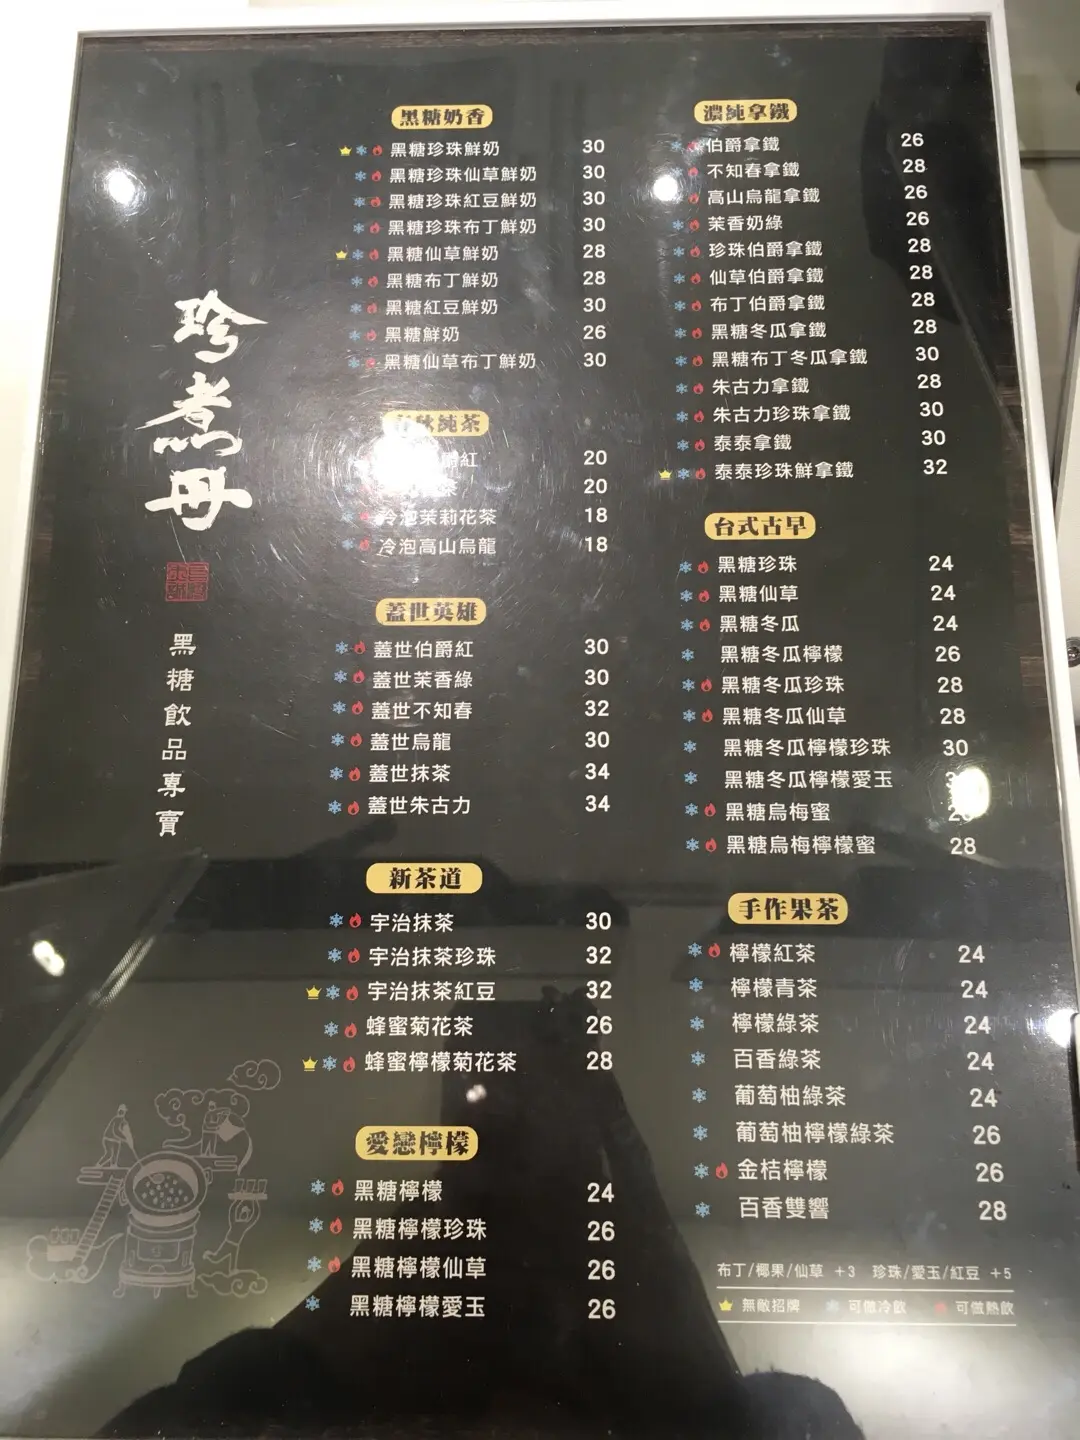 珍煮丹
黑糖飲品專賣
黑糖奶香
黑糖珍珠鮮奶 30
黑糖珍珠仙草鮮奶 30
黑糖珍珠紅豆鮮奶 30
黑糖珍珠布丁鮮奶 30
黑糖仙草鮮奶 28
黑糖布丁鮮奶 28
黑糖紅豆鮮奶 30
黑糖鮮奶 26
黑糖仙草布丁鮮奶 30
純茶
爵紅 20
茶 20
冷泡茉莉花茶 18
冷泡高山烏龍 18
蓋世英雄
蓋世伯爵紅 30
蓋世茉香綠 30
蓋世不知春 32
蓋世烏龍 30
蓋世抹茶 34
蓋世朱古力 34
新茶道
宇治抹茶 30
宇治抹茶珍珠 32
宇治抹茶紅豆 32
蜂蜜菊花茶 26
蜂蜜檸檬菊花茶 28
愛戀檸檬
黑糖檸檬 24
黑糖檸檬珍珠 26
黑糖檸檬仙草 26
黑糖檸檬愛玉 26
濃純拿鐵
伯爵拿鐵 26
不知春拿鐵 28
高山烏龍拿鐵 26
茉香奶綠 26
珍珠伯爵拿鐵 28
仙草伯爵拿鐵 28
布丁伯爵拿鐵 28
黑糖冬瓜拿鐵 28
黑糖布丁冬瓜拿鐵 30
朱古力拿鐵 28
朱古力珍珠拿鐵 30
泰泰拿鐵 30
泰泰珍珠鮮拿鐵 32
台式古早
黑糖珍珠 24
黑糖仙草 24
黑糖冬瓜 24
黑糖冬瓜檸檬 26
黑糖冬瓜珍珠 28
黑糖冬瓜仙草 28
黑糖冬瓜檸檬珍珠 30
黑糖冬瓜檸檬愛玉
黑糖烏梅蜜
黑糖烏梅檸檬蜜 28
手作果茶
檸檬紅茶 24
檸檬青茶 24
檸檬綠茶 24
百香綠茶 24
葡萄柚綠茶 24
葡萄柚檸檬綠茶 26
金桔檸檬 26
百香雙響 28
布丁/椰果/仙草 +3 珍珠/愛玉/紅豆 +5
無敵招牌 可做冷飲 可做熱飲